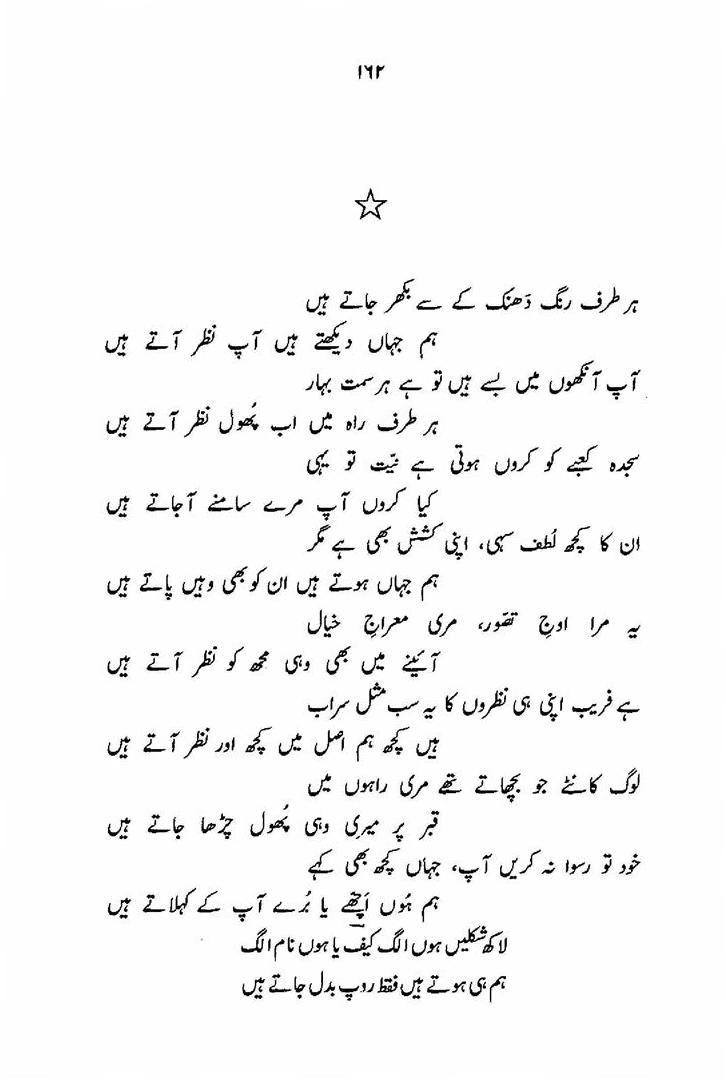 ۱۶۲
ہر طرف رنگ دَھنک کے سے بکھر جاتے ہیں
ہم جہاں دیکھتے ہیں آپ نظر آتے ہیں
آپ آنکھوں میں بسے ہیں تو ہے ہر سمت بہار
ہر طرف راہ میں اب پُھول نظر آتے ہیں
سجدہ کعبے کو کروں ہوتی ہے نیّت تو یہی
کیا کروں آپ مرے سامنے آجاتے ہیں
ان کا کچھ لُطف سہی، اپنی کشش بھی ہے مگر
ہم جہاں ہوتے ہیں ان کو بھی وہیں پاتے ہیں
یہ مرا اوجِ تصّور، مری معراجِ خیال
آئینے میں بھی وہی مجھ کو نظر آتے ہیں
ہے فریب اپنی ہی نظروں کا یہ سب مثلِ سراب
ہیں کچھ ہم اصل میں کچھ اور نظر آتے ہیں
لوگ کانٹے جو بچھاتے تھے مری راہوں میں
قبر پر میری وہی پُھول چڑھا جاتے ہیں
خود تو رسوا نہ کریں آپ، جہاں کچھ بھی کہے
ہم ہُوں اَچھے یا بُرے آپ کے کہلاتے ہیں
لاکھ شکلیں ہوں الگ کیفؔ یا ہوں نام الگ
ہم ہی ہوتے ہیں فقط روپ بدل جاتے ہیں